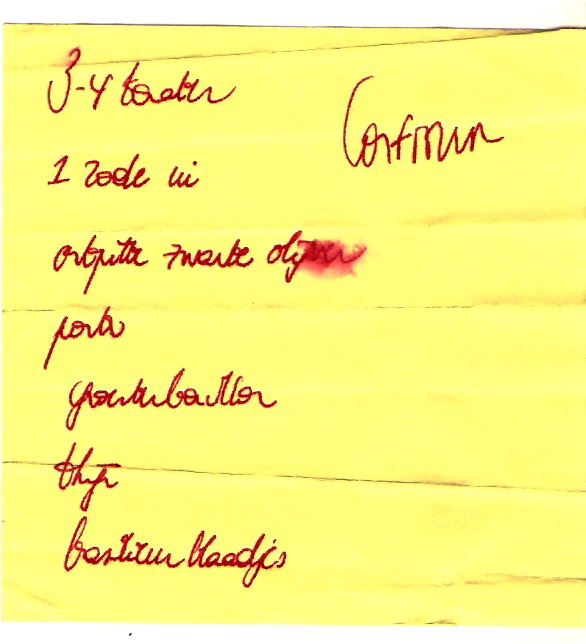 3-4 tomaten
1 rode ui
ontpitte zwarte olijven
porto
groentebouillon
thijm
basilicum blaadjes